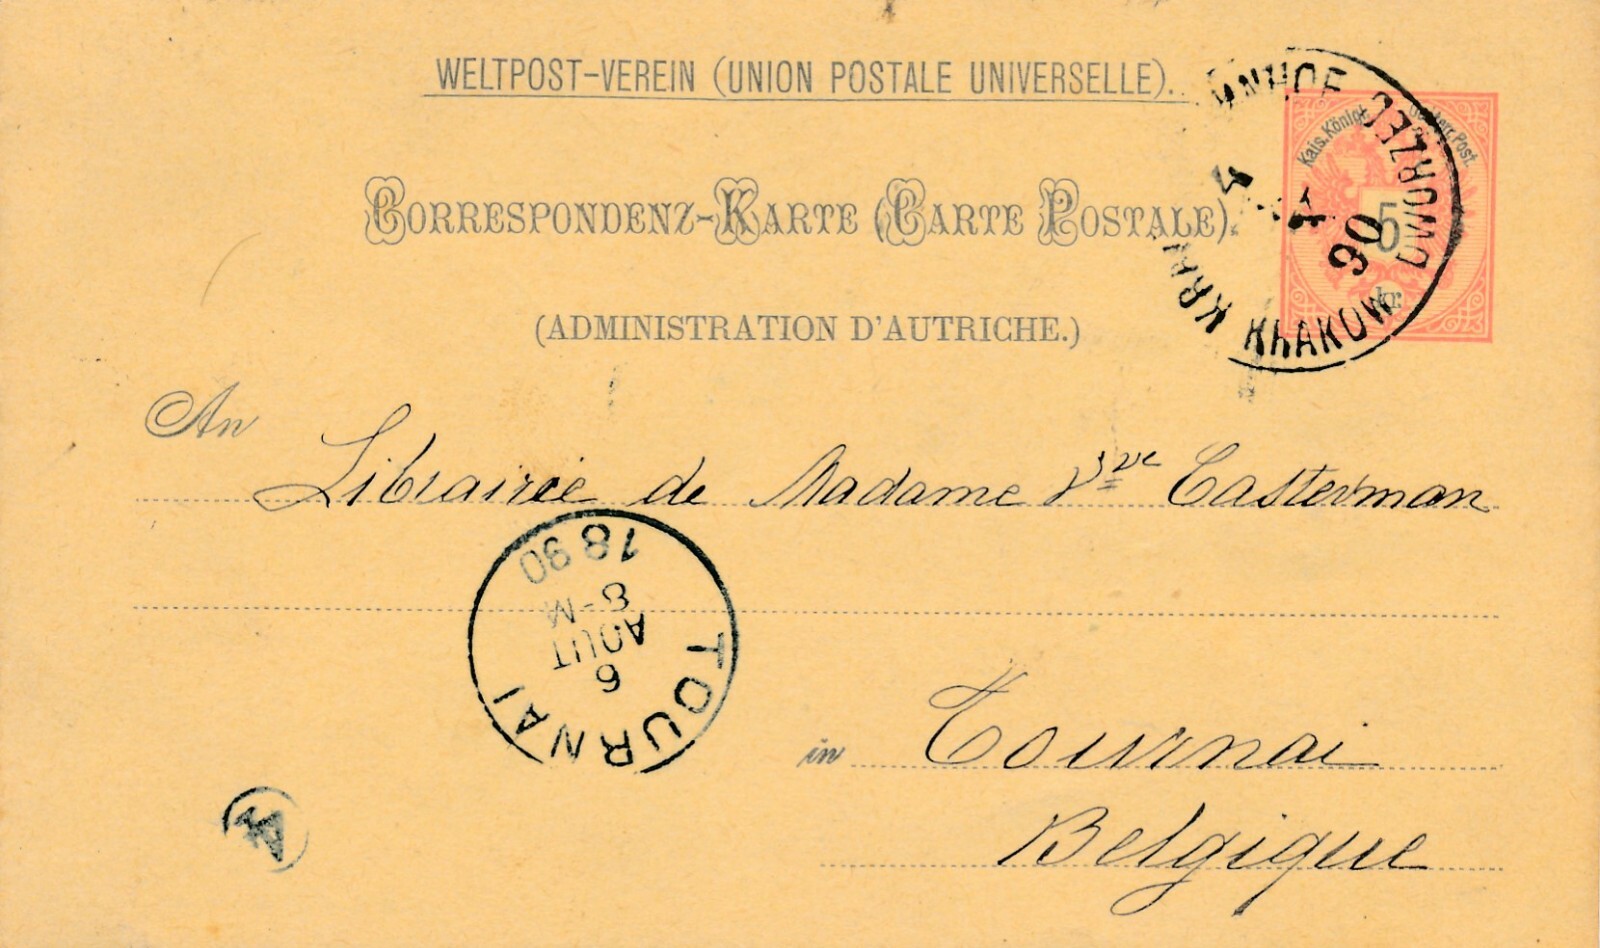 WELTPOST-VEREIN (UNION POSTALE UNIVERSELLE).
CORRESPONDENZ-KARTE (CARTE POSTALE).
(ADMINISTRATION D'AUTRICHE.)
Kais. Königl. Oesterr. Post.
5
kr.
KRAKOW DWORZEC
90
An
Librairie de Madame Vve Casterman
TOURNAI
6
AOUT
8-M
1890
in Tournai
Belgique